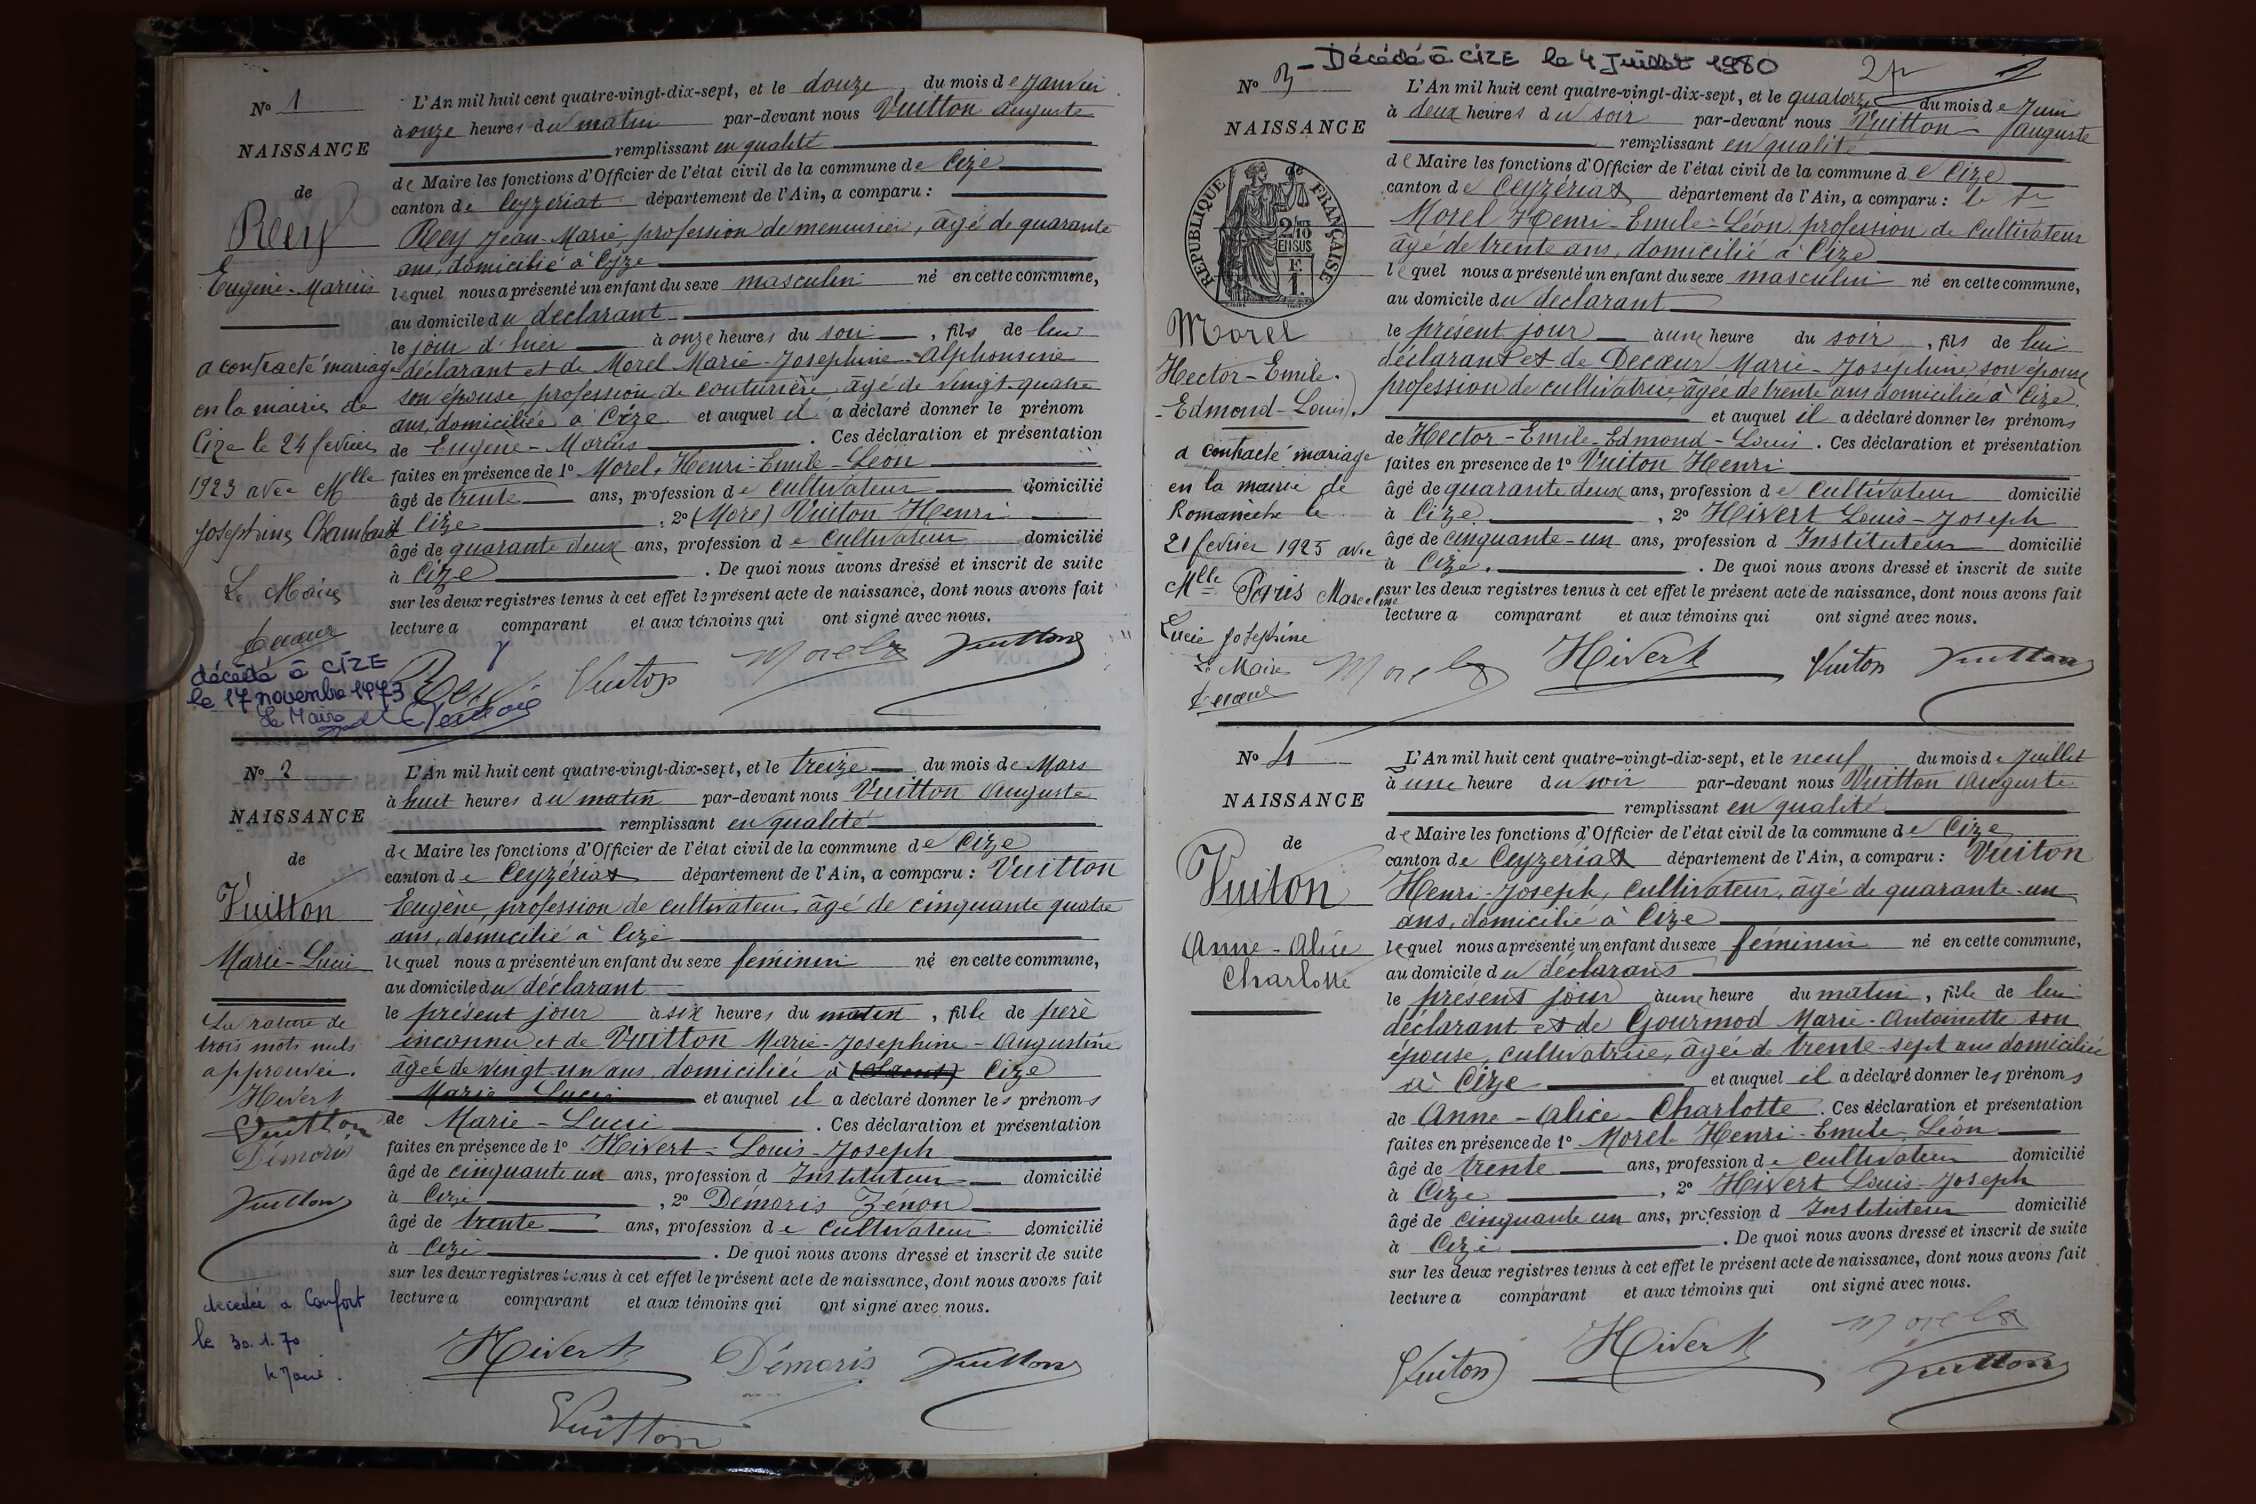 N° 1
NAISSANCE
de
Rey
Eugène-Marius
a contracté mariage
en la mairie de
Cize le 24 fevrier
1923 avec Mlle
Josephine Chambard
Le Maire
Decoeur
décédé à CIZE
le 17 novembre 1973
Le Maire
L'An mil huit cent quatre-vingt-dix-sept, et le douze du mois de Janvier
à onze heures du matin par-devant nous Vuitton Auguste
remplissant en qualité
de Maire les fonctions d'Officier de l'état civil de la commune de Cize
canton de Ceyzériat département de l'Ain, a comparu :
Rey Jean-Marie, profession de menuisier, âgé de quarante
ans, domicilié à Cize
lequel nous a présenté un enfant du sexe masculin né en cette commune,
au domicile du déclarant
le jour d'hier à onze heures du soir, fils de lui
déclarant et de Morel Marie-Josephine-Alphonsine
son épouse, profession de couturière, âgé de vingt-quatre
ans, domiciliée à Cize et auquel il a déclaré donner le prénom
de Eugène-Marius. Ces déclaration et présentation
faites en présence de 1° Morel Henri-Emile-Leon
âgé de trente ans, profession de cultivateur domicilié
à Cize, 2° (Morel) Vuiton Henri
âgé de quarante deux ans, profession de cultivateur domicilié
à Cize. De quoi nous avons dressé et inscrit de suite
sur les deux registres tenus à cet effet le présent acte de naissance, dont nous avons fait
lecture a comparant et aux témoins qui ont signé avec nous.
Rey Vuiton Morel Vuitton
N° 2
NAISSANCE
de
Vuitton
Marie-Lucie
La rature de
trois mots nuls
approuvée.
Hivert
Vuitton
Démaris
Vuitton
décédée a Confort
le 30.1.70
L'An mil huit cent quatre-vingt-dix-sept, et le treize du mois de Mars
à huit heures du matin par-devant nous Vuitton Auguste
remplissant en qualité
de Maire les fonctions d'Officier de l'état civil de la commune de Cize
canton de Ceyzériat département de l'Ain, a comparu : Vuitton
Eugène, profession de cultivateur, âgé de cinquante quatre
ans, domicilié à Cize
lequel nous a présenté un enfant du sexe féminin né en cette commune,
au domicile du déclarant
le présent jour à six heures du matin, fille de père
inconnu et de Vuitton Marie-Josephine-Augustine
âgée de vingt-un ans, domiciliée à Cize
Marie Lucie et auquel il a déclaré donner les prénoms
de Marie-Lucie. Ces déclaration et présentation
faites en présence de 1° Hivert-Louis-Joseph
âgé de cinquante un ans, profession d Instituteur domicilié
à Cize, 2° Démaris Zénon
âgé de trente ans, profession de cultivateur domicilié
à Cize. De quoi nous avons dressé et inscrit de suite
sur les deux registres tenus à cet effet le présent acte de naissance, dont nous avons fait
lecture a comparant et aux témoins qui ont signé avec nous.
Hivert Démaris Vuitton
Vuitton
Décédé à CIZE le 4 Juillet 1980
N° 3
NAISSANCE
de
RÉPUBLIQUE FRANÇAISE
2/10
EN SUS
F.
1.
Morel
Hector-Emile-
-Edmond-Louis.
a contracté mariage
en la mairie de
Romanèche le
21 fevrier 1925 avec
Mlle Paris Marceline
Lucie Josephine
Le Maire
Decoeur
L'An mil huit cent quatre-vingt-dix-sept, et le quatorze du mois de Juin
à deux heures du soir par-devant nous Vuitton Auguste
remplissant en qualité
de Maire les fonctions d'Officier de l'état civil de la commune de Cize
canton de Ceyzériat département de l'Ain, a comparu : le sr
Morel Henri-Emile-Léon, profession de cultivateur
âgé de trente ans, domicilié à Cize
lequel nous a présenté un enfant du sexe masculin né en cette commune,
au domicile du déclarant
le présent jour à une heure du soir, fils de lui
déclarant et de Decoeur Marie-Joséphine son épouse
profession de cultivatrice, âgée de trente ans domiciliée à Cize,
et auquel il a déclaré donner les prénoms
de Hector-Emile-Edmond-Louis. Ces déclaration et présentation
faites en présence de 1° Vuiton Henri
âgé de quarante deux ans, profession de cultivateur domicilié
à Cize, 2° Hivert Louis-Joseph
âgé de cinquante-un ans, profession d Instituteur domicilié
à Cize. De quoi nous avons dressé et inscrit de suite
sur les deux registres tenus à cet effet le présent acte de naissance, dont nous avons fait
lecture a comparant et aux témoins qui ont signé avec nous.
Morel Hivert Vuiton Vuitton
N° 4
NAISSANCE
de
Vuiton
Anne-Alice
Charlotte
L'An mil huit cent quatre-vingt-dix-sept, et le neuf du mois de Juillet
à une heure du soir par-devant nous Vuitton Auguste
remplissant en qualité
de Maire les fonctions d'Officier de l'état civil de la commune de Cize
canton de Ceyzériat département de l'Ain, a comparu : Vuiton
Henri-Joseph, cultivateur, âgé de quarante-un
ans, domicilié à Cize
lequel nous a présenté un enfant du sexe féminin né en cette commune,
au domicile du déclarant
le présent jour à une heure du matin, fille de lui
déclarant et de Gourmod Marie-Antoinette son
épouse, cultivatrice, âgée de trente-sept ans domiciliée
à Cize et auquel il a déclaré donner les prénoms
de Anne-Alice-Charlotte. Ces déclaration et présentation
faites en présence de 1° Morel Henri-Emile-Léon
âgé de trente ans, profession de cultivateur domicilié
à Cize, 2° Hivert Louis-Joseph
âgé de cinquante un ans, profession d Instituteur domicilié
à Cize. De quoi nous avons dressé et inscrit de suite
sur les deux registres tenus à cet effet le présent acte de naissance, dont nous avons fait
lecture a comparant et aux témoins qui ont signé avec nous.
Vuiton Hivert Morel Vuitton